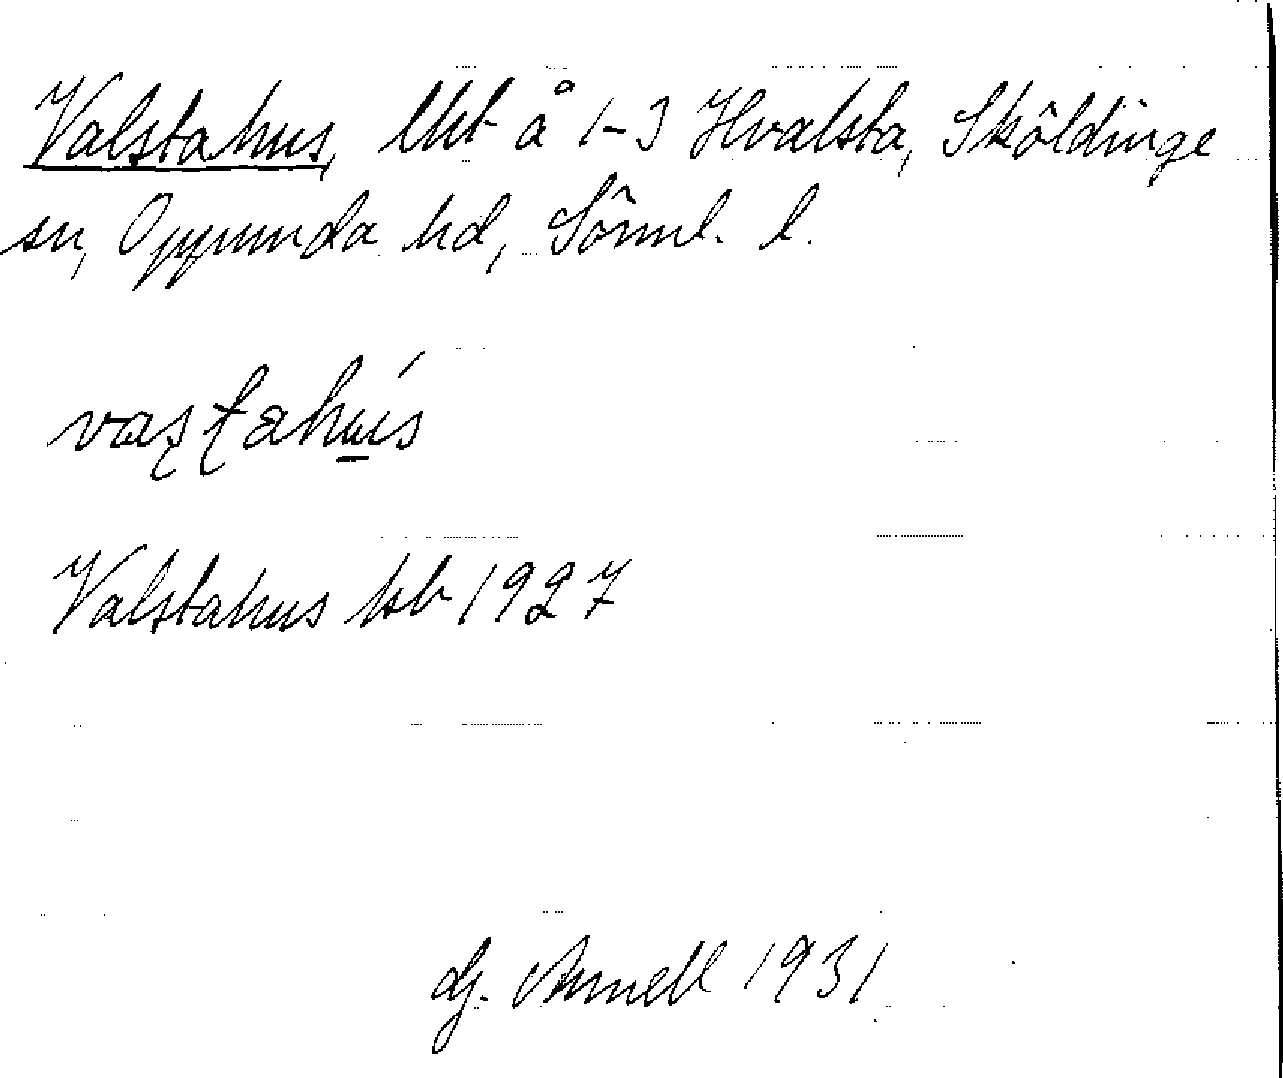 Valstahus, lht å 1-3 Hvalsta, Sköldinge
sn, Oppunda hd, Sörml. l.
vaʂʈahu̲ś
Valstahus kb 1927
Dj. Arnell 1931